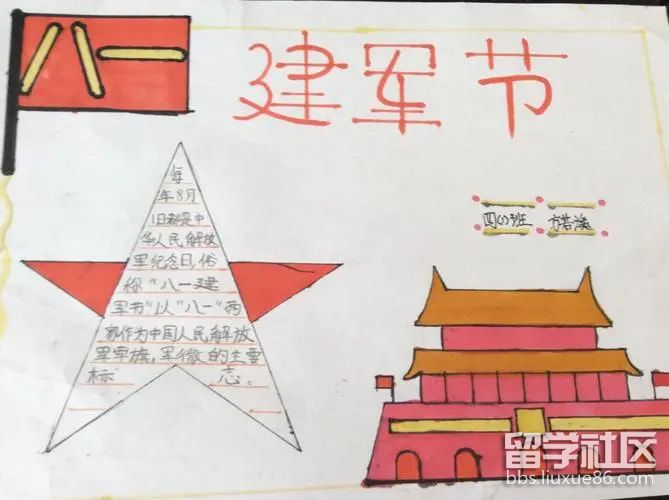 八一
建军节
每
年8月
1日都是中
华人民解放
军纪念日,俗
称"八一建
军节"以"八一"两
字作为中国人民解放
军军旗,军徽的主要
标志。
四(1)班 方若溪
留学社区
bbs.liuxue86.com